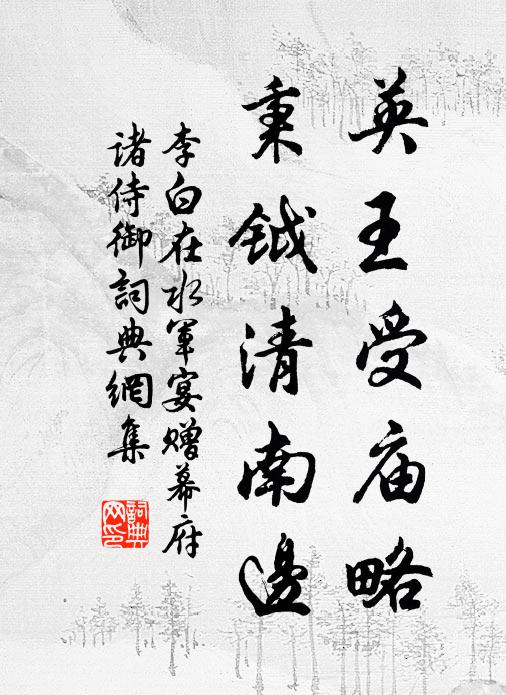 英王受庙略
秉钺清南邊
李白在水軍宴赠幕府
诸侍御詞典網集
詞典
网印